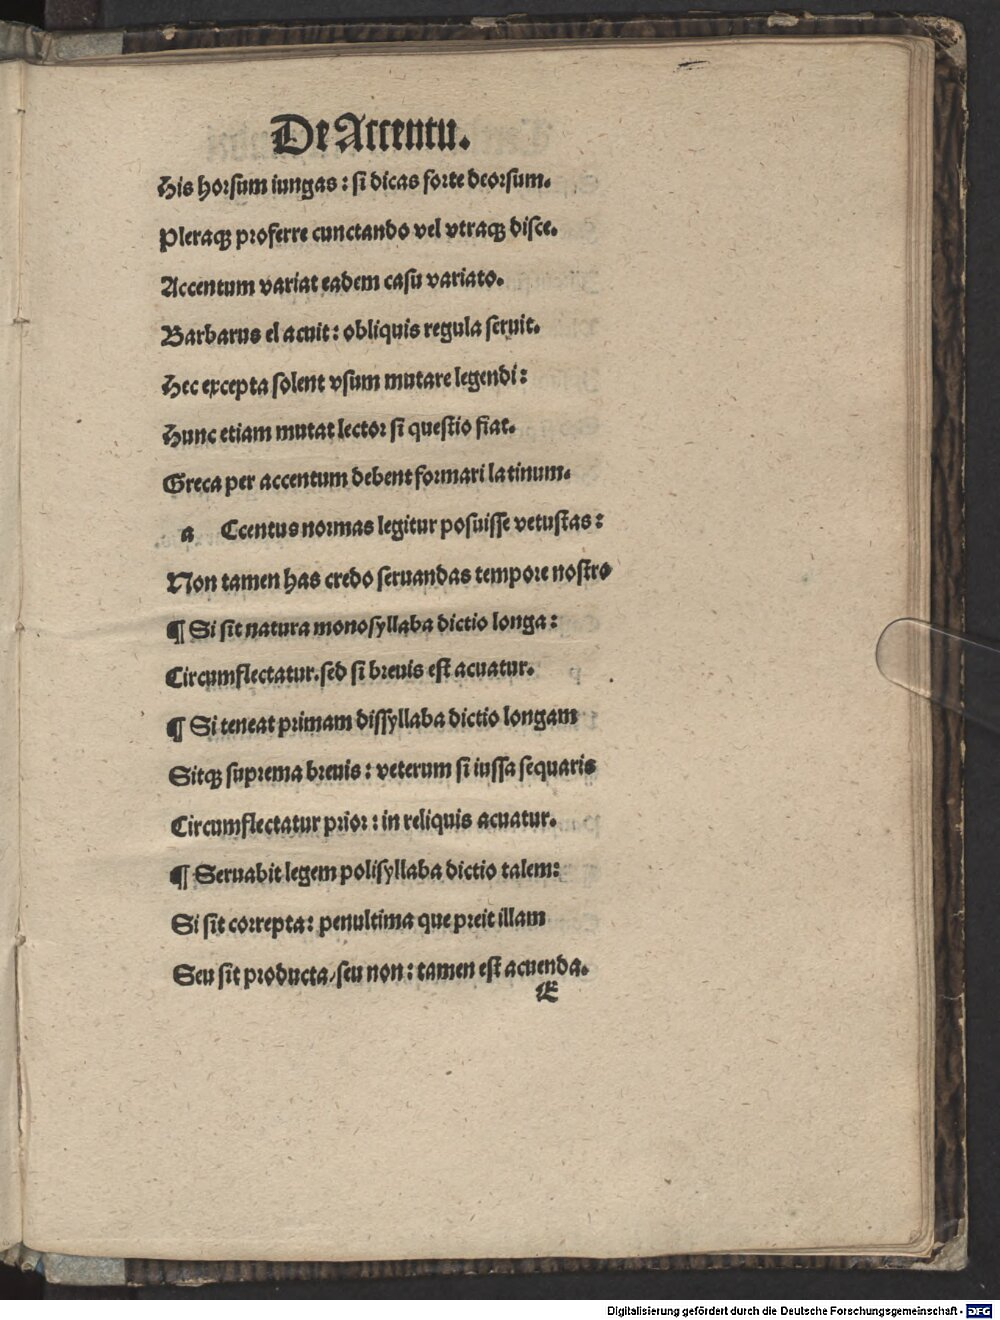 De Accentu.
His horsum iungas : si dicas forte deorsum.
Pleraqꝫ proferre cunctando vel vtraqꝫ disce.
Accentum variat eadem casu variato.
Barbarus el acuit : obliquis regula seruit.
Hec excepta solent vsum mutare legendi :
Hunc etiam mutat lector si questio fiat.
Greca per accentum debent formari latinum.
a Ccentus normas legitur posuisse vetustas :
Non tamen has credo seruandas tempore nostro
¶ Si sit natura monosyllaba dictio longa :
Circumflectatur. sed si breuis est acuatur.
¶ Si teneat primam dissyllaba dictio longam
Sitqꝫ suprema breuis : veterum si iussa sequaris
Circumflectatur prior : in reliquis acuatur.
¶ Seruabit legem polisyllaba dictio talem :
Si sit correpta : penultima que preit illam
Seu sit producta / seu non : tamen est acuenda.
E
Digitalisierung gefördert durch die Deutsche Forschungsgemeinschaft - DFG